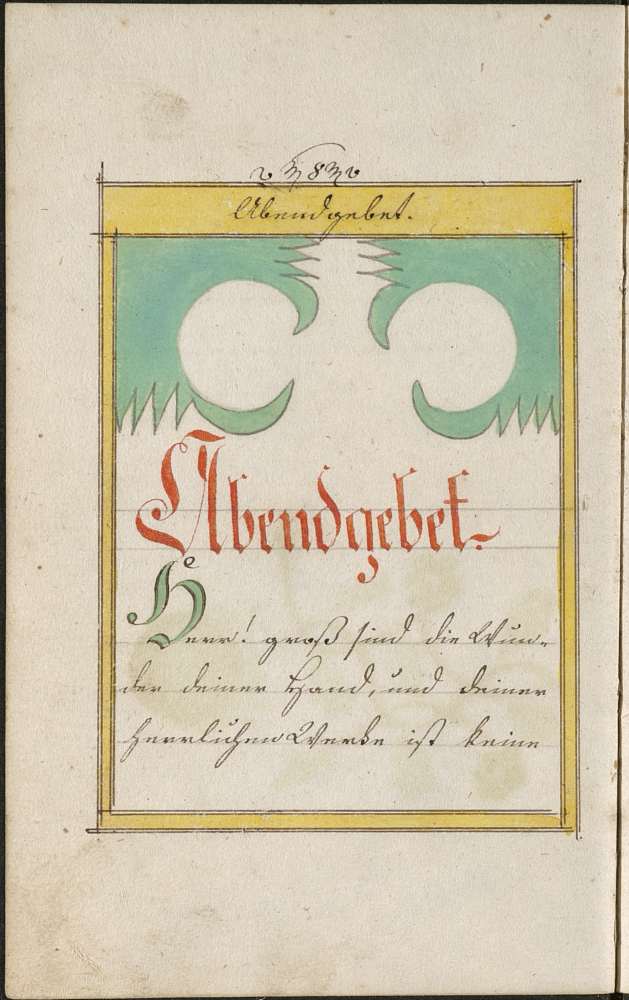 8
Abendgebet.
Abendgebet.
Herr! groß sind die Wun-
der deiner Hand, und deiner
herrlichen Werke ist keine